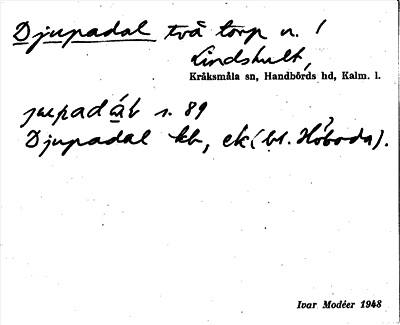 Djupadal två torp n. /
Lindshult,
Kråksmåla sn, Handbörds hd, Kalm. l.
s. 89
Djupadal kb, ek (bl. Höboda).
Ivar Modéer 1948